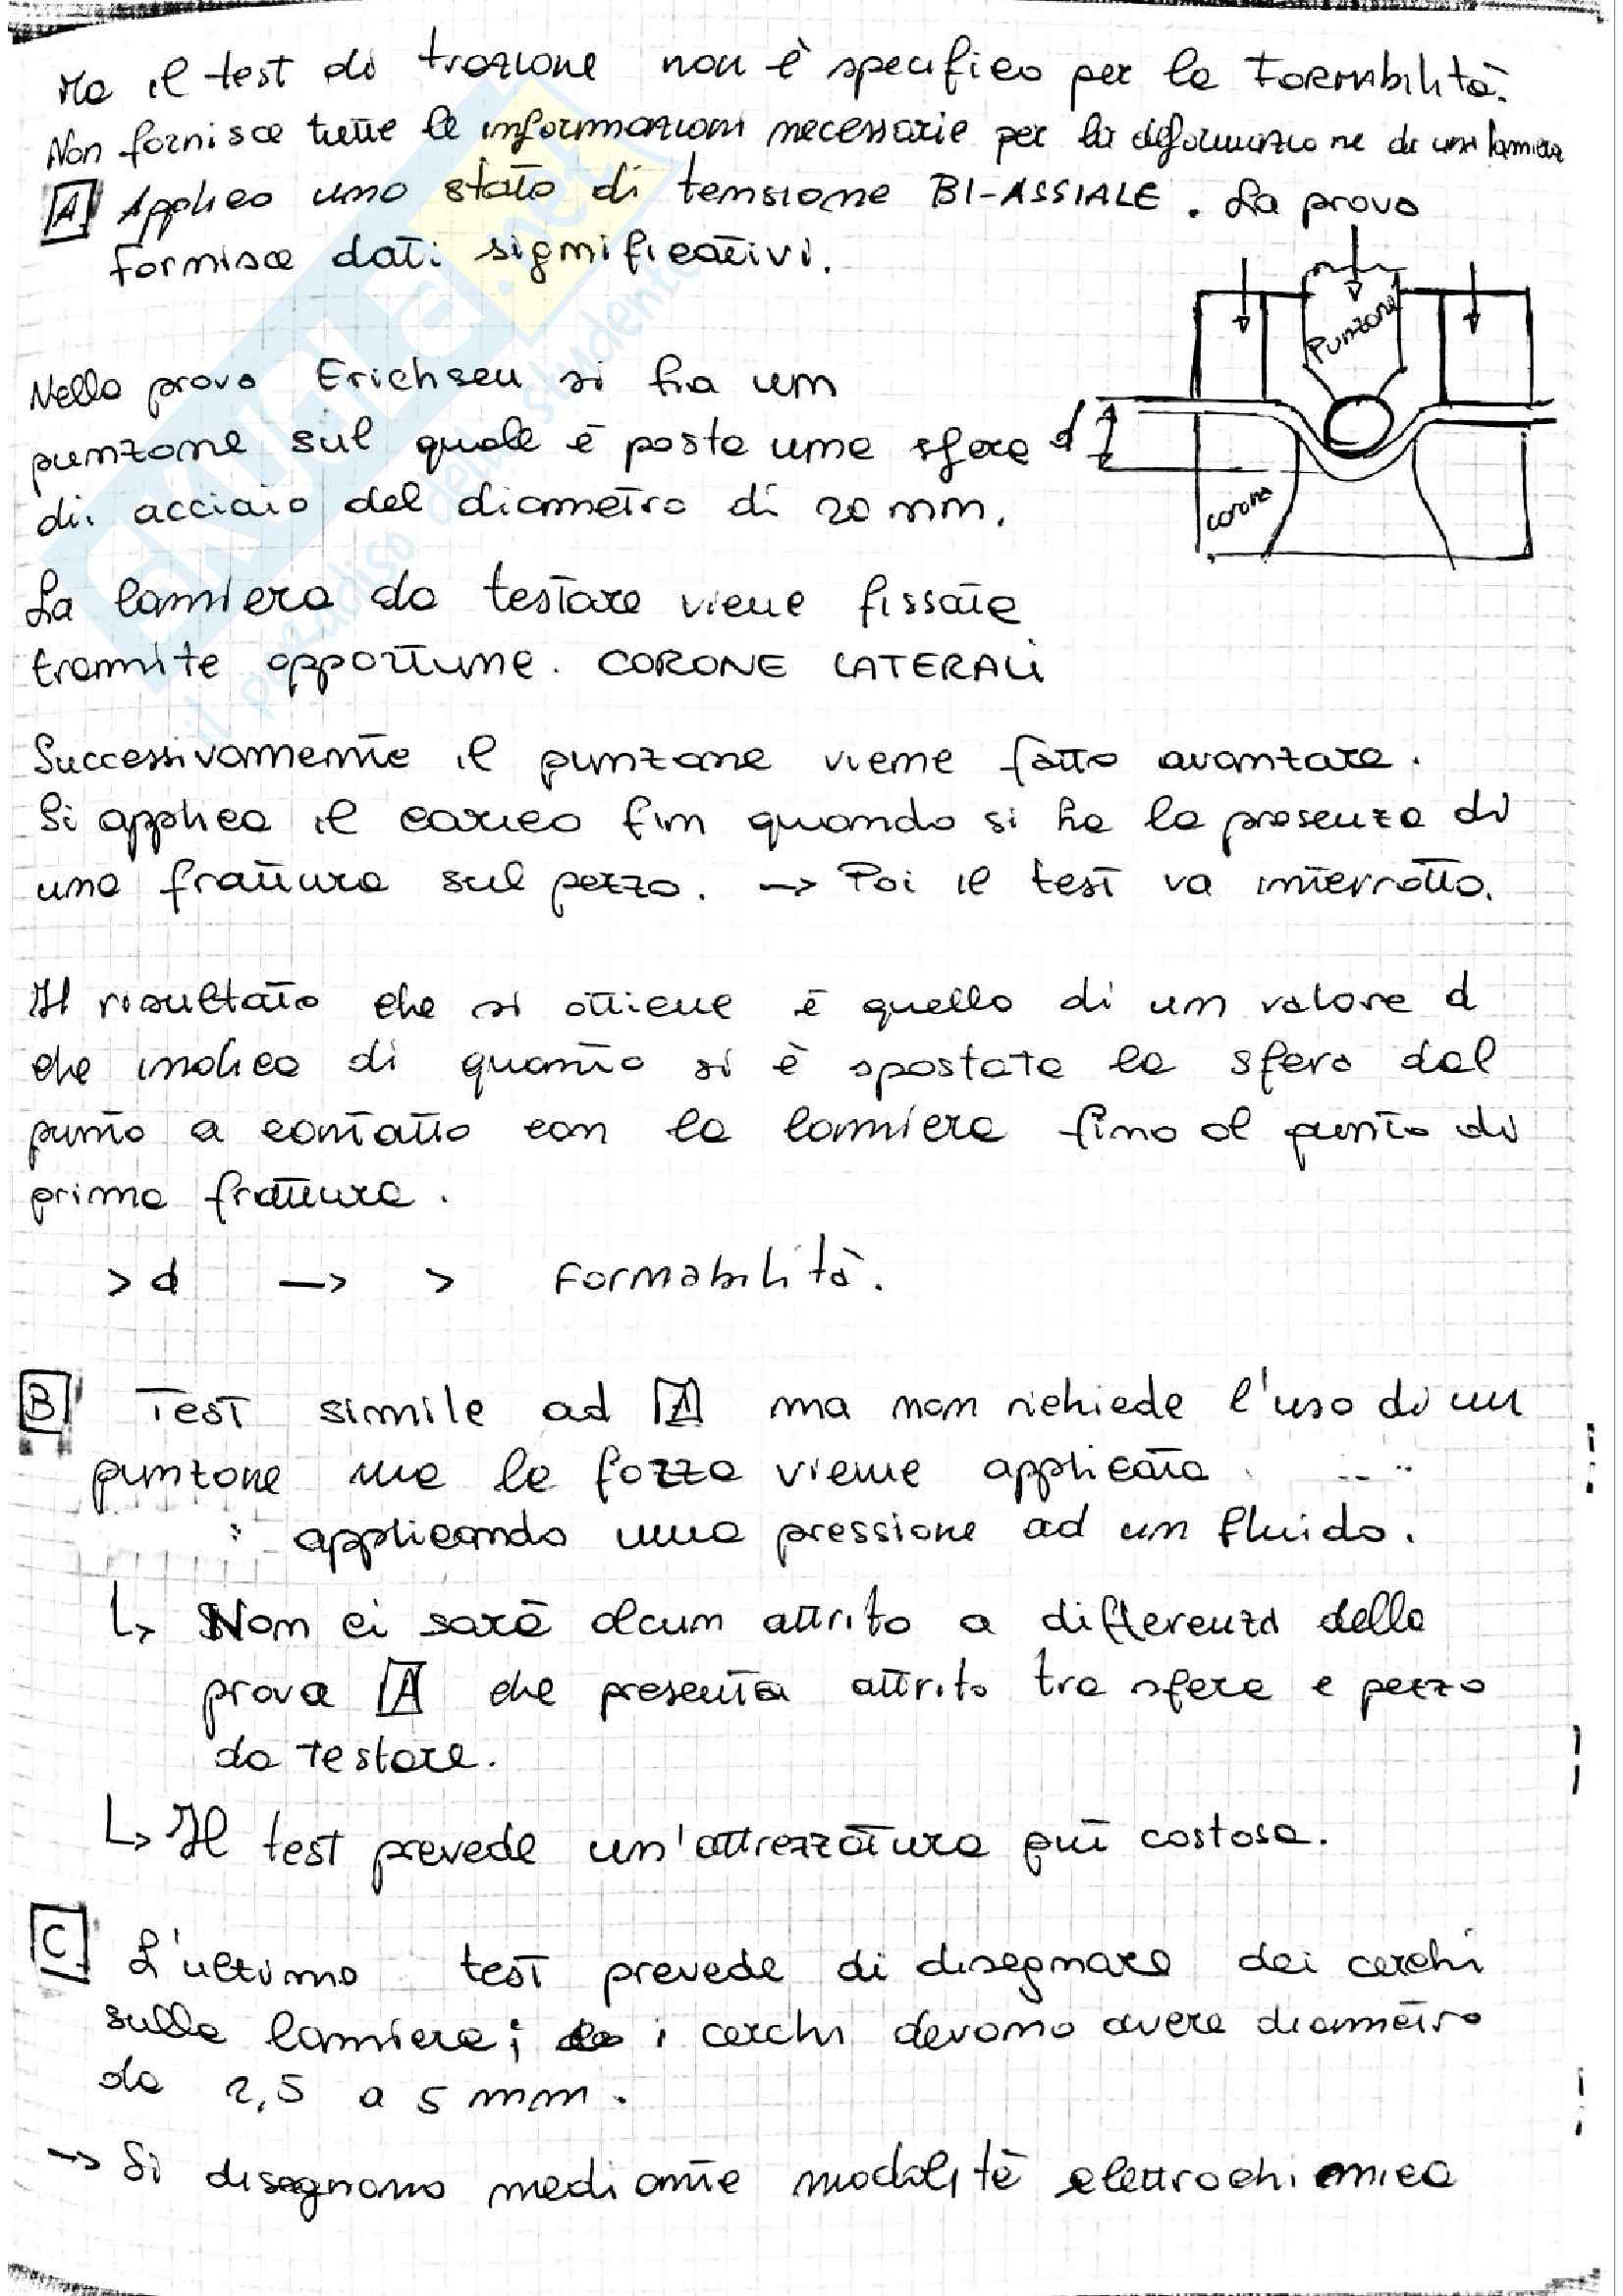 Ma il test di trazione non è specifico per la FORMABILITà.
Non fornisce tutte le informazioni necessarie per la deformazione di una lamiera
A Applico uno stato di tensione BI-ASSIALE. La prova
fornisce dati significativi.
Punzone
Nella prova Erichsen si ha un
punzone sul quale è posta una sfera
di acciaio del diametro di 20 mm.
d
corona
La lamiera da testare viene fissata
tramite opportune. CORONE LATERALI
Successivamente il punzone viene fatto avanzare.
Si applica il carico fin quando si ha la presenza di
una frattura sul pezzo. -> Poi il test va interrotto.
Il risultato che si ottiene è quello di un valore d
che indica di quanto si è spostata la sfera dal
punto a contatto con la lamiera fino al punto di
prima frattura.
> d -> > FORMABILITà.
B Test simile ad A ma non richiede l'uso di un
punzone ma la forza viene applicata
applicando una pressione ad un fluido.
↳ Non ci sarà alcun attrito a differenza della
prova A che presenta attrito tra sfera e pezzo
da testare.
↳ Il test prevede un'attrezzatura più costosa.
C L'ultimo test prevede di disegnare dei cerchi
sulla lamiera; i cerchi devono avere diametro
da 2,5 a 5 mm.
-> Si disegnano mediante modalità elettrochimica
SKUOLA.net
il paradiso dello studente